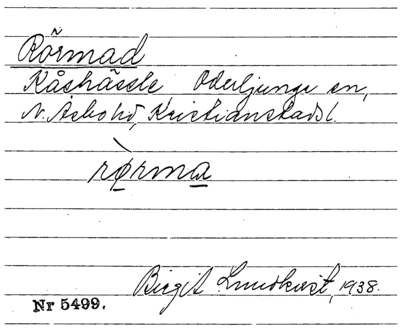 Rörmad
Kåshässle Oderljunga sn,
N. Åsbo hd, Kristianstads l.
rø̀rma
Birgit Lundkvist, 1938.
Nr 5499.